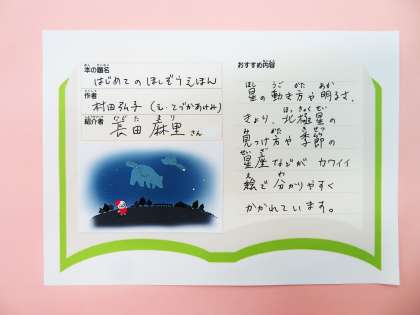 本の題名
はじめての ほしぞらえほん
作者
村田弘子 (え・てづかあけみ)
紹介者
長田 麻里 さん
おすすめ内容
星の動き方や明るさ、
きょり、北極星の
見つけ方や季節の
星座などが カワイイ
絵で分かりやすく
かかれています。